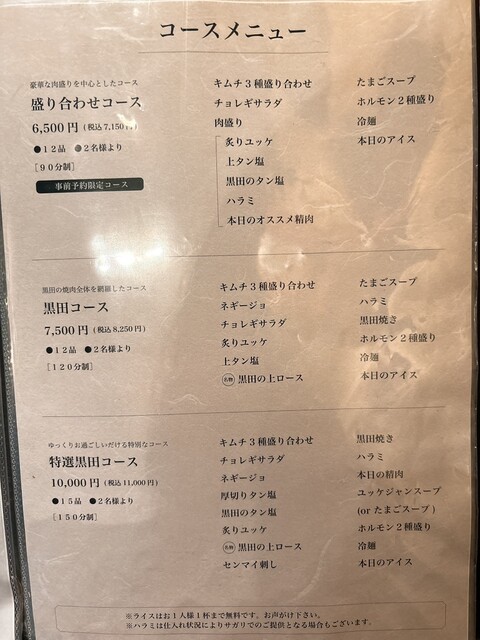 コースメニュー
豪華な肉盛りを中心としたコース
盛り合わせコース
6,500円 (税込7,150円)
●12品 ●2名様より
[90分制]
事前予約限定コース
キムチ3種盛り合わせ
チョレギサラダ
肉盛り
炙りユッケ
上タン塩
黒田のタン塩
ハラミ
本日のオススメ精肉
たまごスープ
ホルモン2種盛り
冷麺
本日のアイス
黒田の焼肉全体を網羅したコース
黒田コース
7,500円 (税込8,250円)
●12品 ●2名様より
[120分制]
キムチ3種盛り合わせ
ネギージョ
チョレギサラダ
炙りユッケ
上タン塩
名物 黒田の上ロース
たまごスープ
ハラミ
黒田焼き
ホルモン2種盛り
冷麺
本日のアイス
ゆっくりお過ごしいだける特別なコース
特選黒田コース
10,000円 (税込11,000円)
●15品 ●2名様より
[150分制]
キムチ3種盛り合わせ
チョレギサラダ
ネギージョ
厚切りタン塩
黒田のタン塩
炙りユッケ
名物 黒田の上ロース
センマイ刺し
黒田焼き
ハラミ
本日の精肉
ユッケジャンスープ
(or たまごスープ)
ホルモン2種盛り
冷麺
本日のアイス
※ライスはお1人様1杯まで無料です。お声がけ下さい。
※ハラミは仕入れ状況によりサガリでのご提供となる場合もございます。